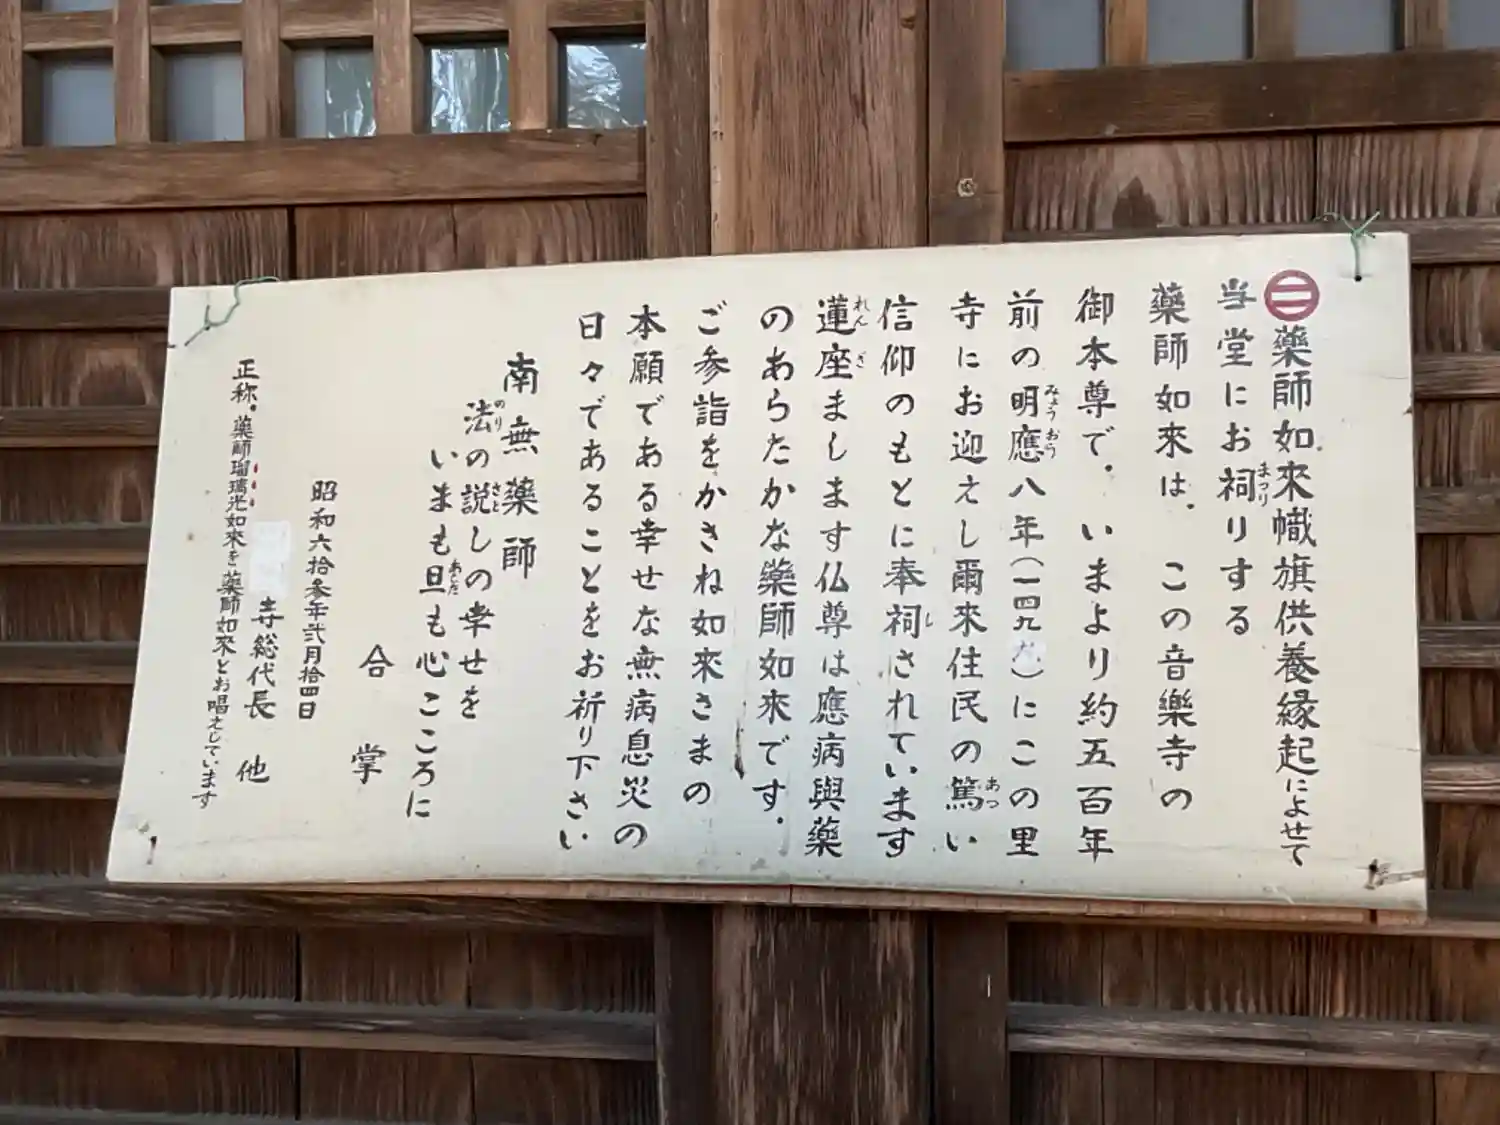 ㊁藥師如來幟旗供養縁起によせて
当堂にお祠りする
藥師如來は、この音樂寺の
御本尊で、いまより約五百年
前の明應八年（一四九九）にこの里
寺にお迎えし爾来住民の篤い
信仰のもとに奉祠されています
蓮座まします仏尊は應病與藥
のあらたかな藥師如来です。
ご参詣をかさね如来さまの
本願である幸せな無病息災の
日々であることをお祈り下さい
南無藥師
法の説しの幸せを
いまも旦も心こころに
合掌
昭和六拾参年弐月拾四日
寺総代長 他
正称、藥師瑠璃光如来を藥師如来とお唱えしています